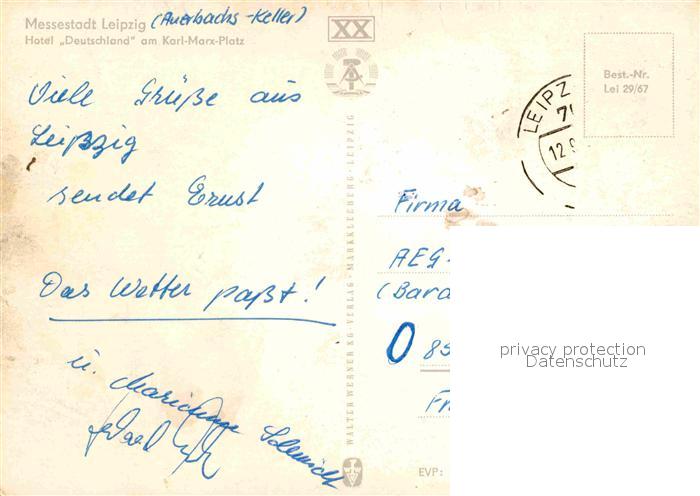 Messestadt Leipzig (Auerbachs-Keller)
Hotel „Deutschland“ am Karl-Marx-Platz
XX
Viele Grüße aus
Leipzig
sendet Ernst
Das Wetter paßt!
u.
WALTER WERNER KG · VERLAG · MARKKLEEBERG · LEIPZIG
Best.-Nr.
Lei 29/67
LEIPZ
12
Firma
AEG-
(Bara
O 85
Fr
privacy protection
Datenschutz
EVP: